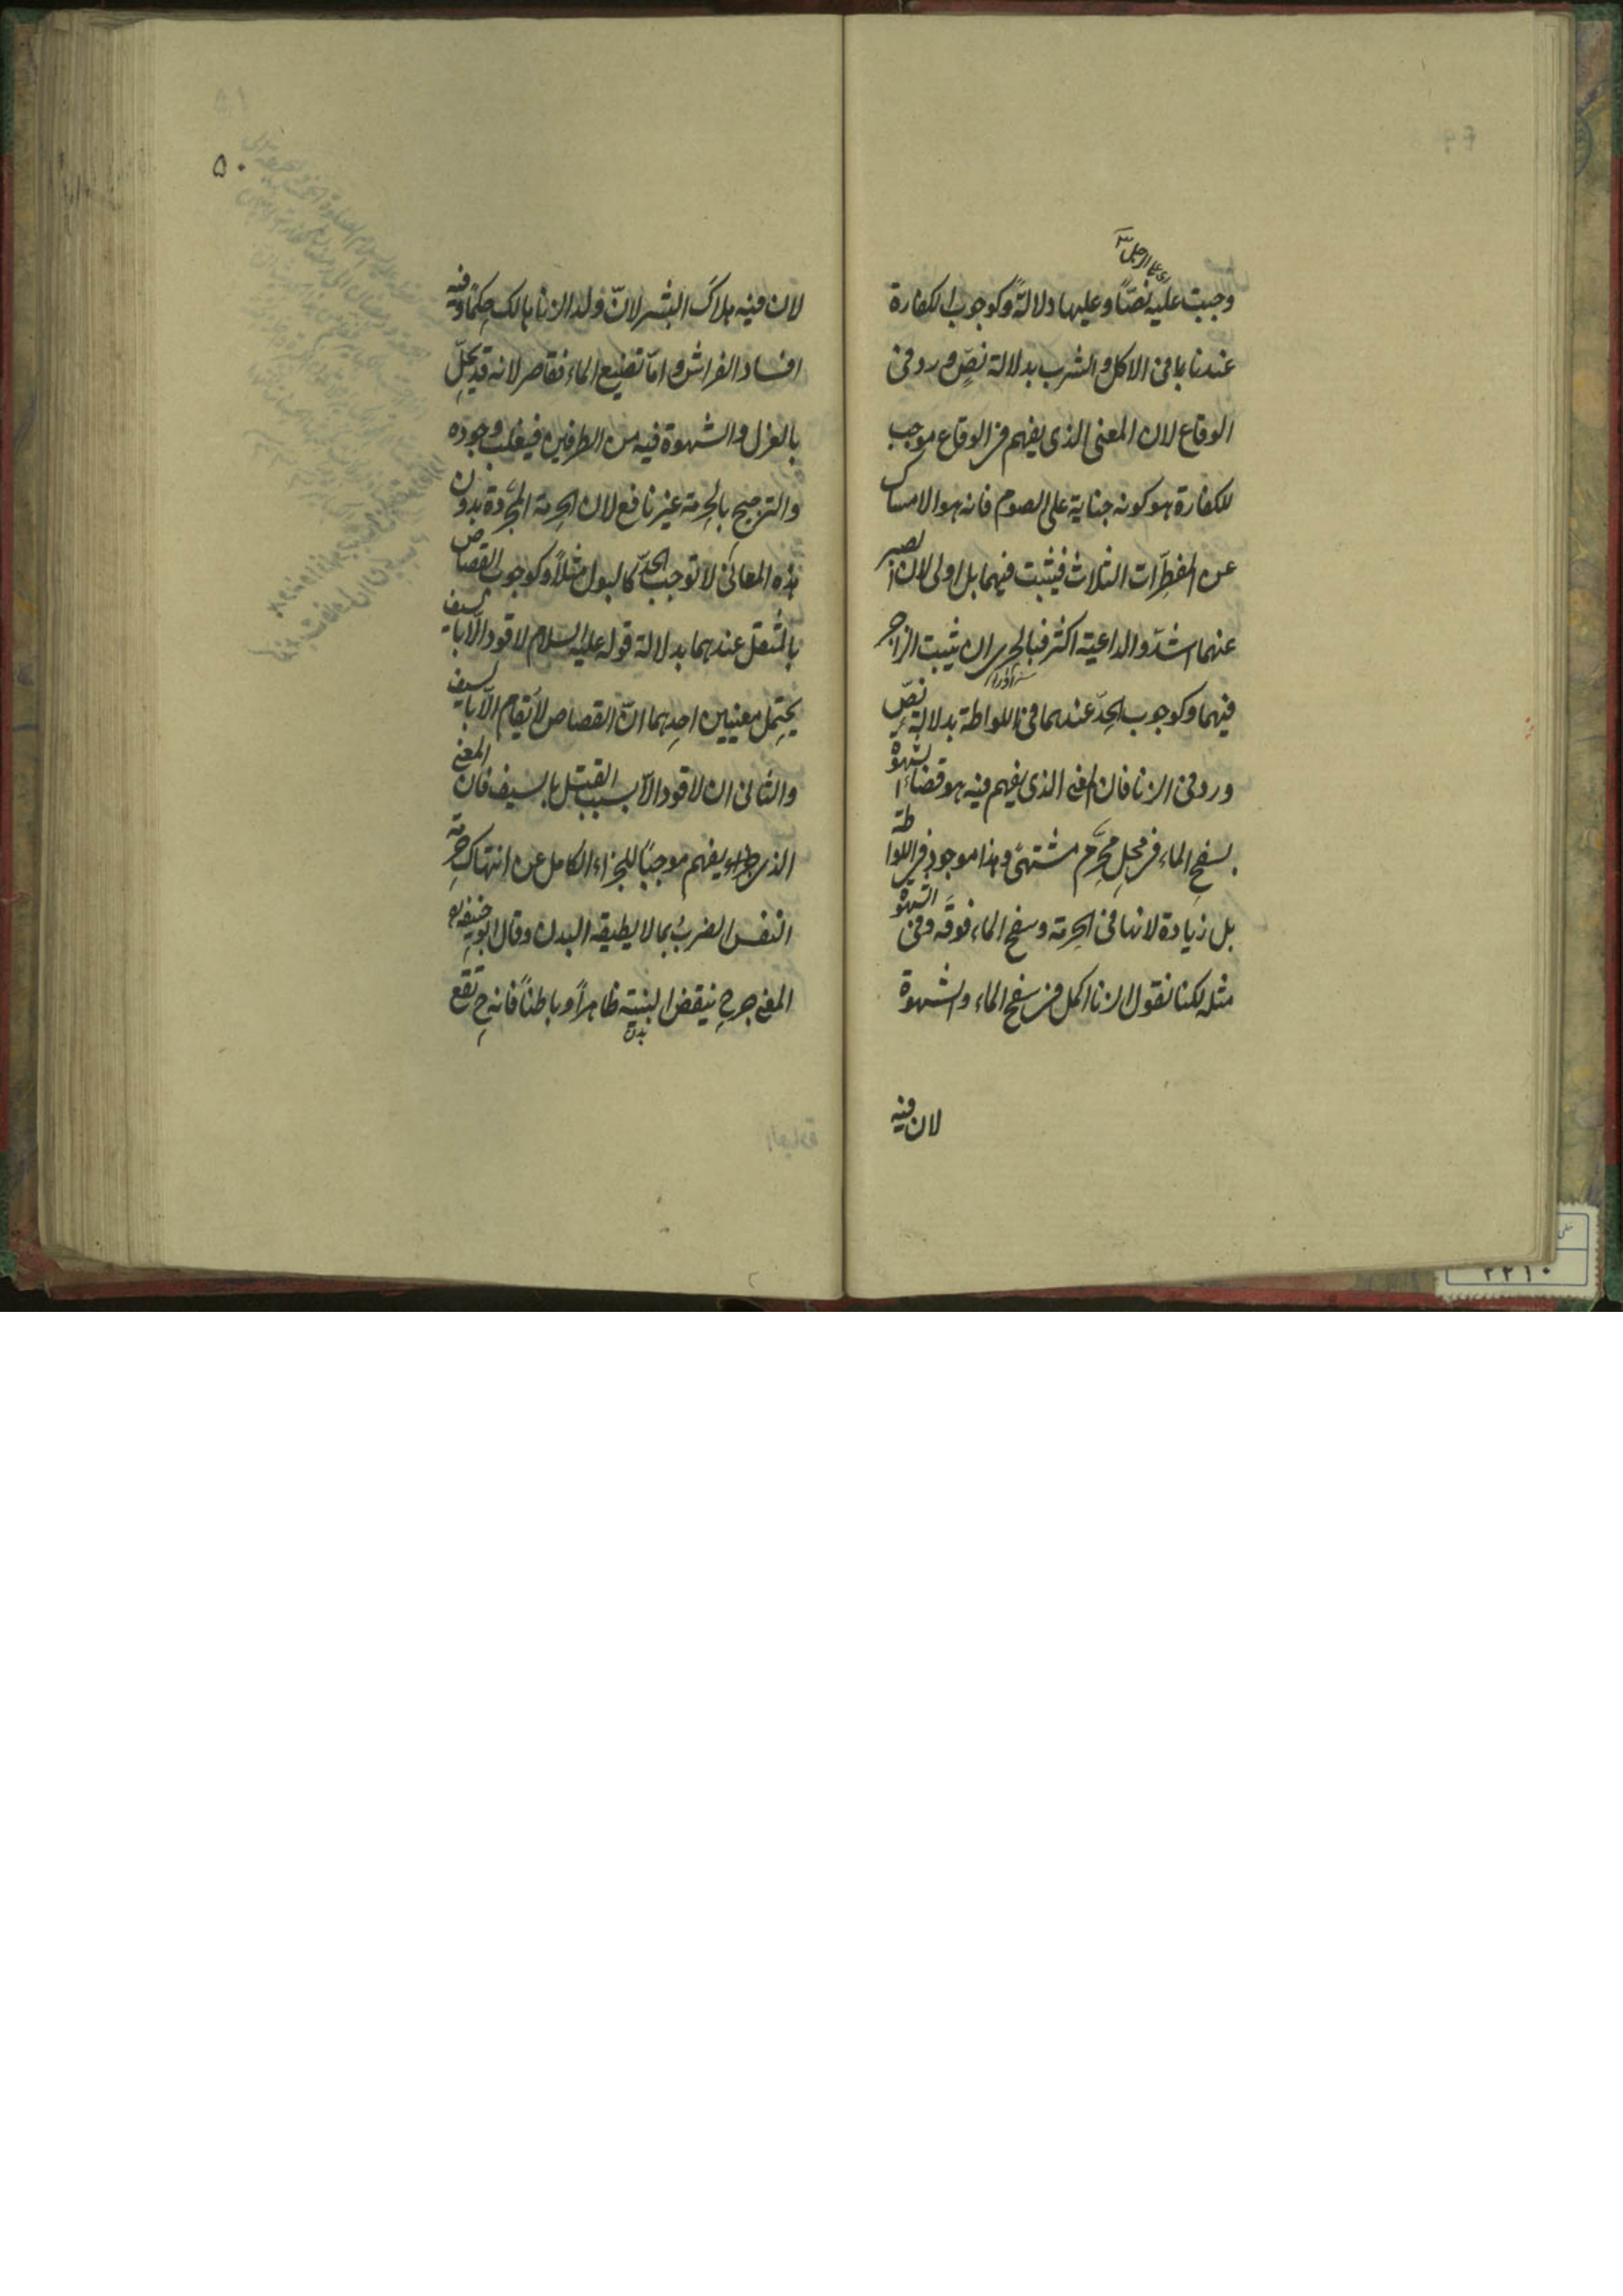 اى على الرجل
وجبت عليه نصّا وعليها دلالةً وكوجوب الكفارة
عندنا بافى الاكل والشرب بدلالة نصٍّ ورد فى
الوقاع لان المعنى الذى يفهم فى الوقاع موجب
للكفارة هو كونه جناية على الصوم فانه هو الامساك
عن المفطرات الثلاث فيثبت فيهما بل اولى لان الصبر
عنهما اشدّ والداعية اكثر فبالحرى ان يثبت الزاجر
سزاوار
فيهما وكوجوب الحدّ عندهما فى اللواطة بدلالة نصّ
ورد فى الزنا فان المعنى الذى يفهم فيه هو قضاء الشهوة
بسفح الماء فى محلٍ محرَّم مشتهىً وهذا موجود فى اللواطة
بل زيادة لانها فى الحرمة وسفح الماء فوقَه وفى الشهوة
مثله لكنا نقول الزنا اكمل فى سفح الماء والشهوة
لان فيه
٥٠
لان فيه هلاكَ البشر لانّ ولد الزنا هالك حكمًا وفيه
افساد الفراش وامّا تضييع الماء فقاصر لانه قد يحلّ
بالعزل والشهوة فيه من الطرفين فيغلب وجوده
والترجيح بالحرمة غير نافع لان الحرمة المجرّدة بدون
هذه المعانى لا توجب الحدّ كالبول مثلاً وكوجوب القصاص
بالمثقل عندهما بدلالة قوله عليه السلام لا قود الا بالسيف
يحتمل معنيين احدهما انّ القصاص لا يُقام الّا بالسيف
والثانى ان لا قود الّا بسبب القتل بالسيف فان المعنى
الذى يفهم موجبًا للجزاء الكامل عن انتهاك حرمة
النفس الضربُ بما لا يطيقه البدن وقال ابو حنيفة
المعنى جرح ينقض البنية ظاهراً وباطناً فانه ح تقع
بدن
٢٢١٠